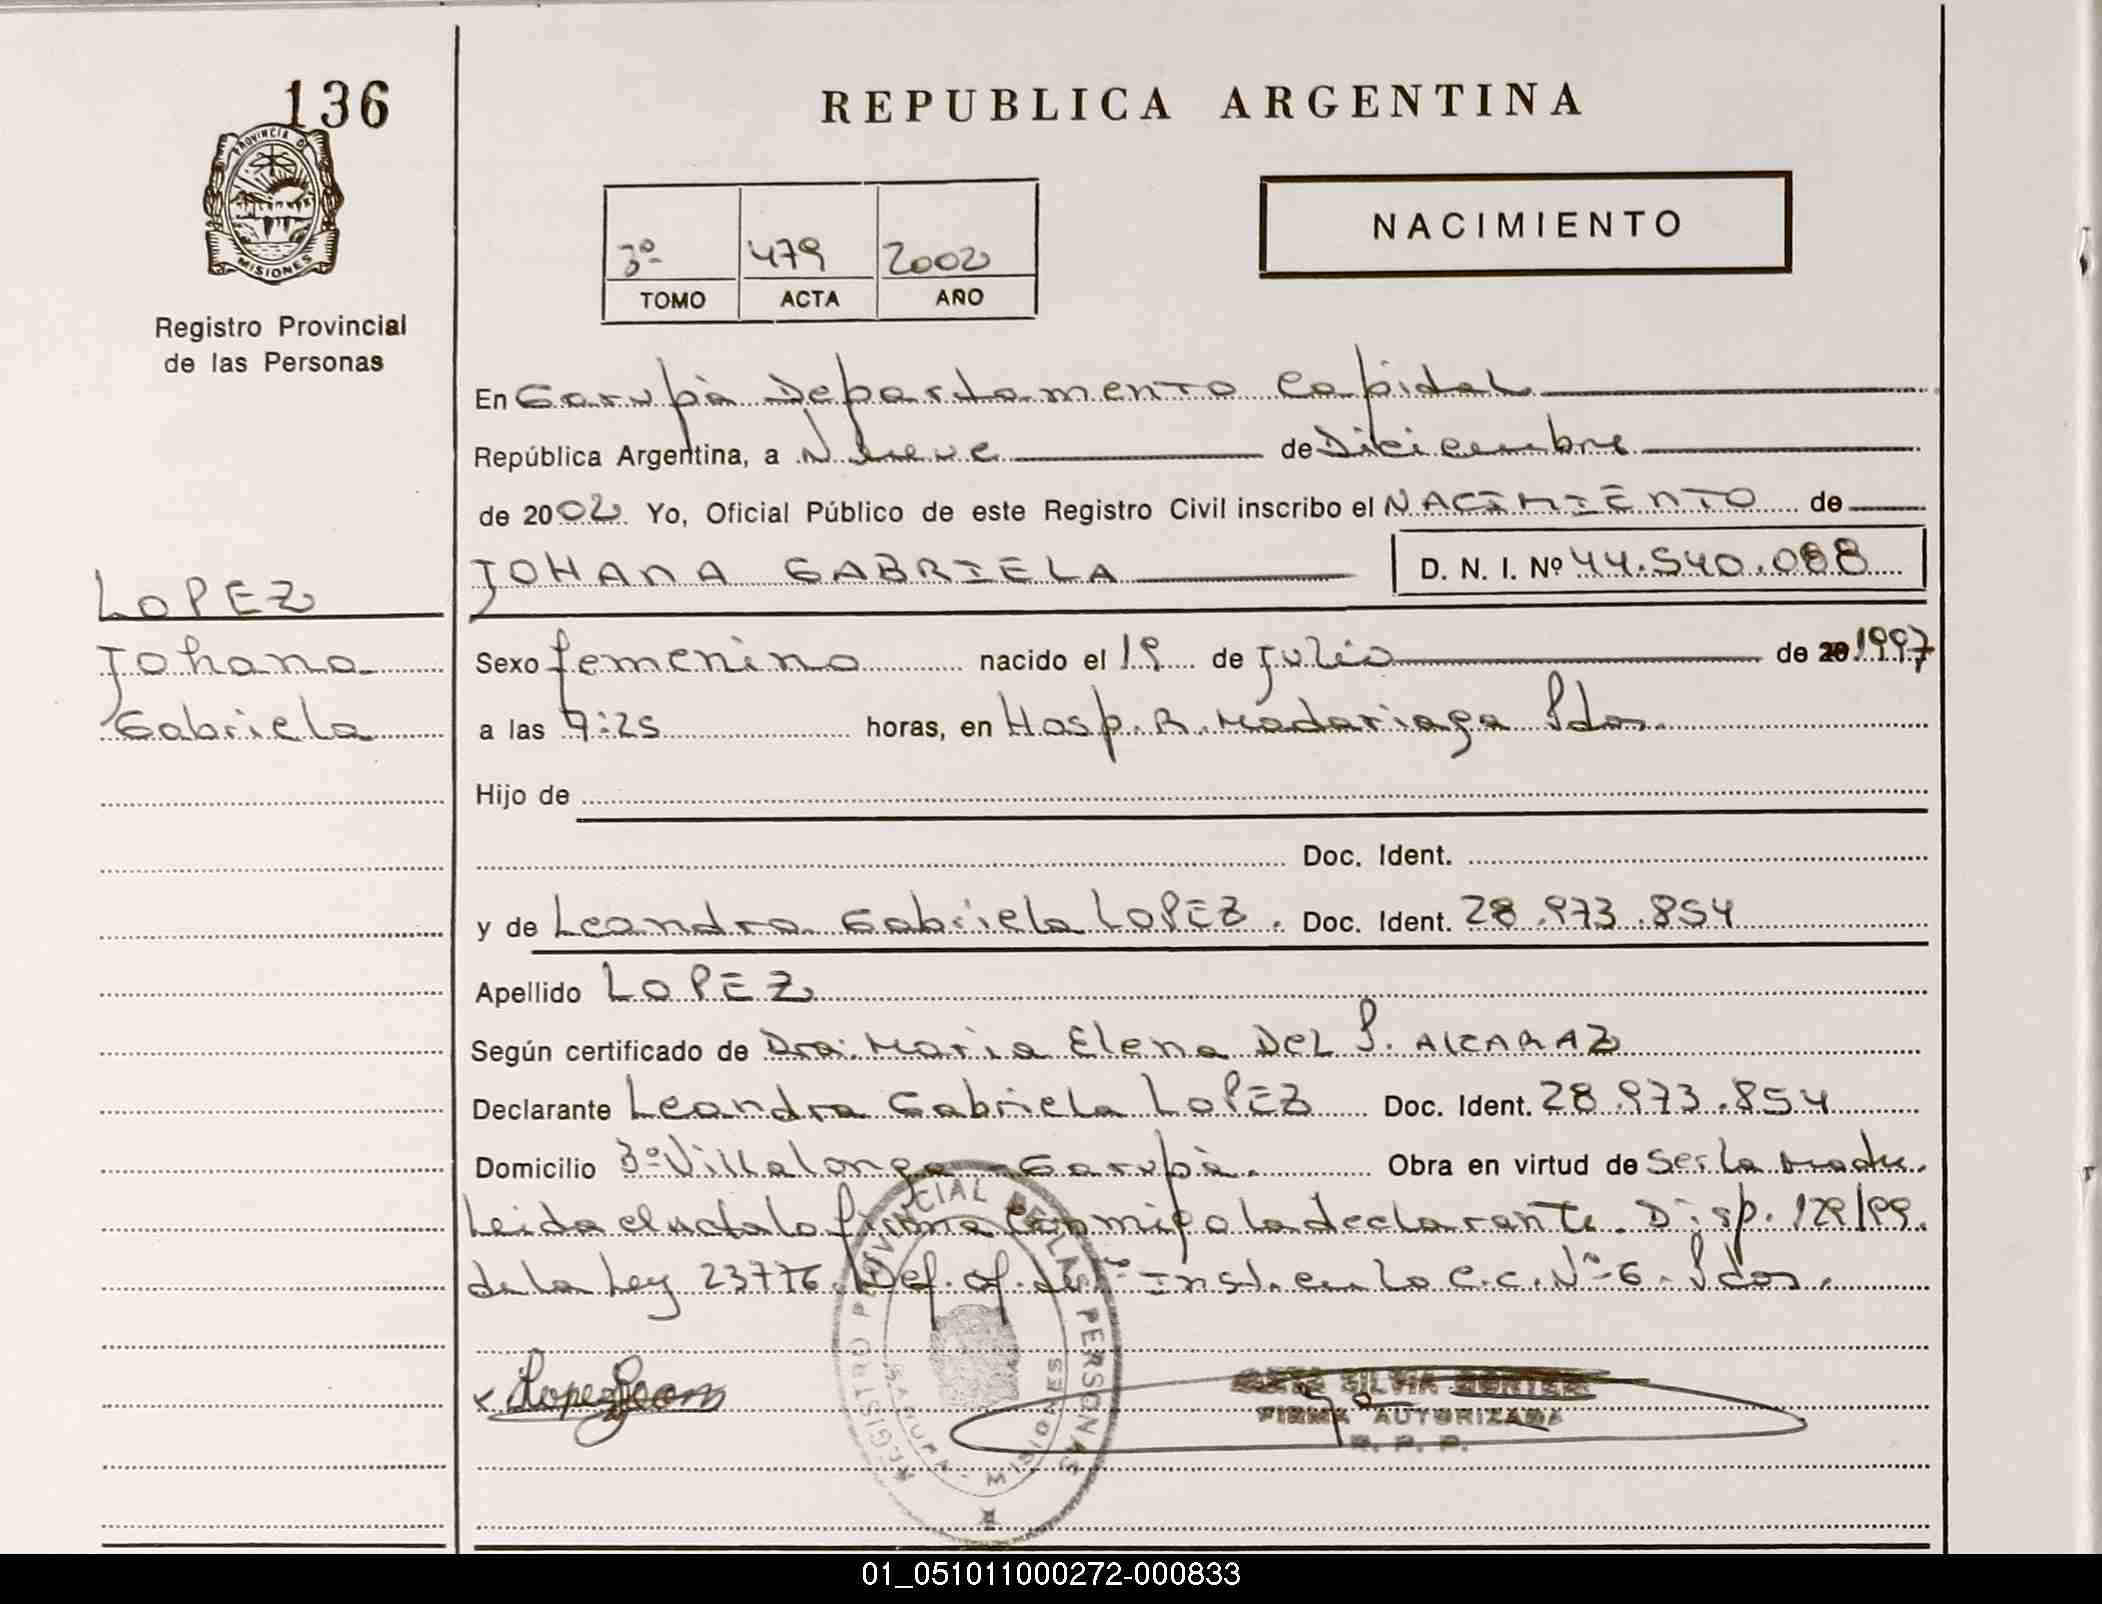 136
PROVINCIA DE
MISIONES
Registro Provincial
de las Personas
LOPEZ
Johana
Gabriela
REPUBLICA ARGENTINA
NACIMIENTO
3º 479 2002
TOMO ACTA AÑO
En Garupà Departamento Capital
República Argentina, a Nueve de Diciembre
de 2002 Yo, Oficial Público de este Registro Civil inscribo el NACIMIENTO de
JOHANA GABRIELA D. N. I. Nº 44.540.088
Sexo femenino nacido el 19 de Julio de 20 1997
a las 7:25 horas, en Hosp. R. Madariaga Pdas.
Hijo de
Doc. Ident.
y de Leandra Gabriela LOPEZ. Doc. Ident. 28.973.854
Apellido LOPEZ
Según certificado de Dra. Maria Elena Del P. ALCARAZ
Declarante Leandra Gabriela LOPEZ Doc. Ident. 28.973.854
Domicilio Bº Villalonga - Garupà. Obra en virtud de Ser la Madre.
Leida el acta la firma conmigo la declarante. Disp. 129/99.
de la Ley 23776. Def. of. de 1º Inst. en lo C.C. Nº 6 - Pdas.
Lopez Lean
REGISTRO PROVINCIAL DE LAS PERSONAS
GARUPA - MISIONES
SILVIA
FIRMA AUTORIZADA
R. P. P.
01_051011000272-000833